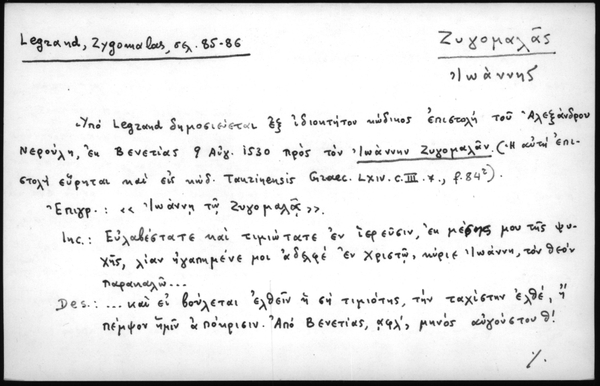 Legrand, Zygomalas, σελ. 85-86
Ζυγομαλᾶς
Ἰωάννης
Ὑπό Legrand δημοσιεύεται ἐξ ἰδιοκτήτου κώδικος ἐπιστολή τοῦ Ἀλεξάνδρου
Νερούλη, ἐκ Βενετίας 9 Αὐγ. 1530 πρὸς τὸν Ἰωάννην Ζυγομαλᾶν. (Ἡ αὐτή ἐπι-
στολή εὕρηται καὶ εἰς κώδ. Taurinensis Graec. LXIV. c. III. *., f. 84²).
Ἐπιγρ.: «Ἰωάννῃ τῷ Ζυγομαλᾷ».
Inc.: Εὐλαβέστατε καὶ τιμιώτατε ἐν ἱερεῦσιν, ἐκ μέσης μου τῆς ψυ-
χῆς, λίαν ἠγαπημένε μοι ἀδελφέ ἐν Χριστῷ, κύριε Ἰωάννη, τὸν θεὸν
παρακαλῶ...
Des.: ... καὶ εἰ βούλεται ἐλθεῖν ἡ σή τιμιότης, τὴν ταχίστην ἐλθέ, ἤ
πέμψον ἡμῖν ἀπόκρισιν. Ἀπό Βενετίας, ͵αφλ', μηνὸς αὐγούστου θ'.
./.